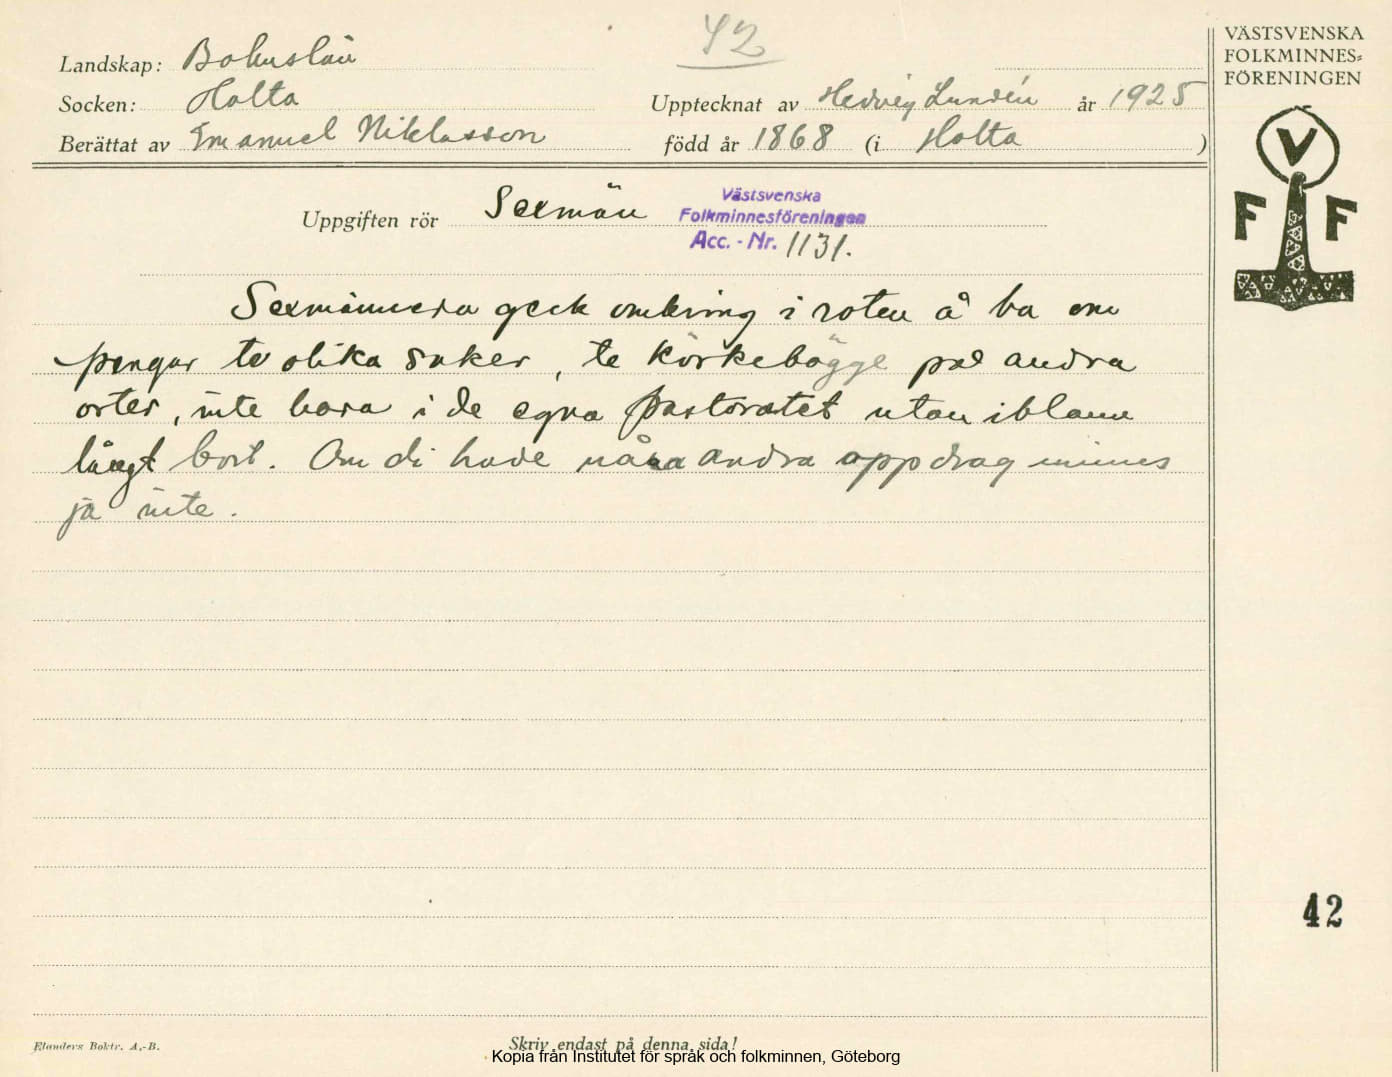 42
Landskap: Bohuslän
Socken: Holta
Upptecknat av Hedvig Lundén år 1925
Berättat av Emanuel Niklasson född år 1868 (i Holta )
Uppgiften rör Sexmän
Västsvenska
Folkminnesföreningen
Acc.-Nr. 1131.
Sexmännera geck omkring i roten å ba om
pengar te olika saker, te körkebögge på andra
orter, inte bara i de egna pastoratet utan iblann
långt bort. Om di hade nåra andra uppdrag minnes
ja inte.
VÄSTSVENSKA
FOLKMINNES=
FÖRENINGEN
V
F F
42
Elanders Boktr. A.-B.
Skriv endast på denna sida!
Kopia från Institutet för språk och folkminnen, Göteborg